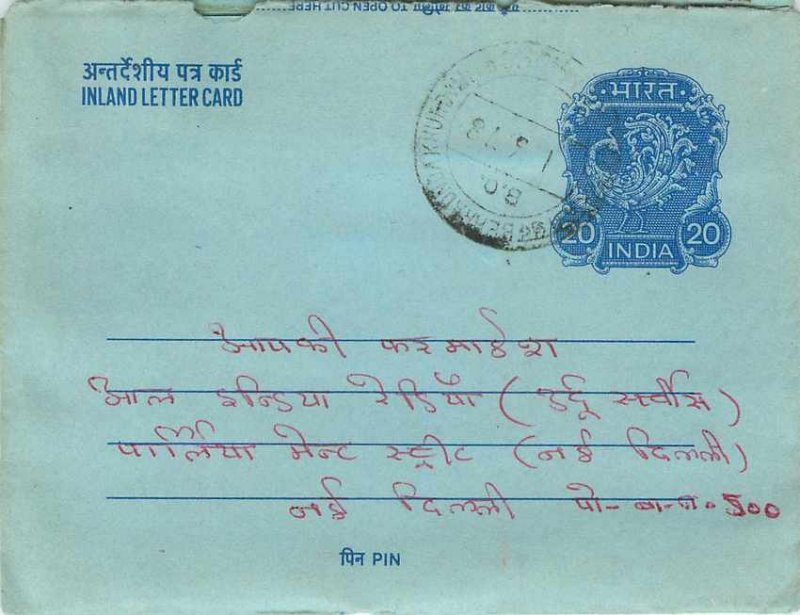 को काट कर खोलिए TO OPEN CUT HERE
अन्तर्देशीय पत्र कार्ड
INLAND LETTER CARD
भारत
20 20
INDIA
B.O.
आपकी फरमाईश
आल इन्डिया रेडियौ (उर्दू सर्वीस)
पार्लिया मेन्ट स्ट्रीट (नई दिल्ली)
नई दिल्ली पो-बा-न. 500
पिन PIN